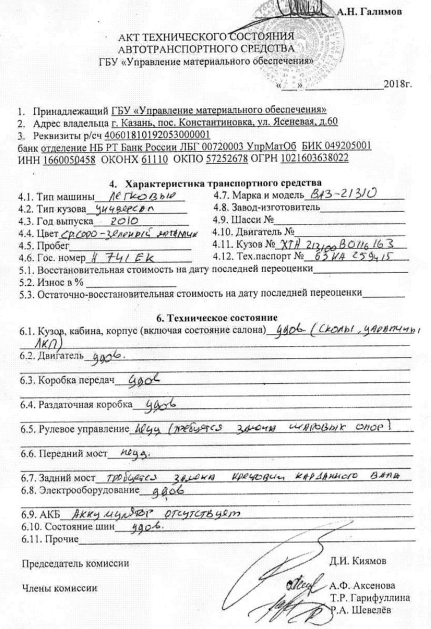 А.Н. Галимов
АКТ ТЕХНИЧЕСКОГО СОСТОЯНИЯ
АВТОТРАНСПОРТНОГО СРЕДСТВА
ГБУ «Управление материального обеспечения»
«___»____________2018г.
1. Принадлежащий ГБУ «Управление материального обеспечения»
2. Адрес владельца г. Казань, пос. Константиновка, ул. Ясеневая, д.60
3. Реквизиты р/сч 40601810192053000001
банк отделение НБ РТ Банк России ЛБГ 00720003 УпрМатОб БИК 049205001
ИНН 1660050458 ОКОНХ 61110 ОКПО 57252678 ОГРН 1021603638022
4. Характеристика транспортного средства
4.1. Тип машины легковые 4.7. Марка и модель ВАЗ-21310
4.2. Тип кузова универсал 4.8. Завод-изготовитель
4.3. Год выпуска 2010 4.9. Шасси №
4.4. Цвет зеленый 4.10. Двигатель №
4.5. Пробег 4.11. Кузов № ХТА 213100 В0116163
4.6. Гос. номер Н 741 ЕК 4.12. Тех.паспорт № 63 259415
5.1. Восстановительная стоимость на дату последней переоценки
5.2. Износ в %
5.3. Остаточно-восстановительная стоимость на дату последней переоценки
6. Техническое состояние
6.1. Кузов, кабина, корпус (включая состояние салона) удов (сколы, царапины
ЛКП)
6.2. Двигатель удов.
6.3. Коробка передач удов
6.4. Раздаточная коробка удов
6.5. Рулевое управление неуд (требуется замена шаровых опор)
6.6. Передний мост неуд.
6.7. Задний мост требуется замена крестовин карданного вала
6.8. Электрооборудование удов
6.9. АКБ Аккумулятор отсутствует
6.10. Состояние шин удов.
6.11. Прочие
Председатель комиссии Д.И. Киямов
Члены комиссии А.Ф. Аксенова
Т.Р. Гарифуллина
Р.А. Шевелёв